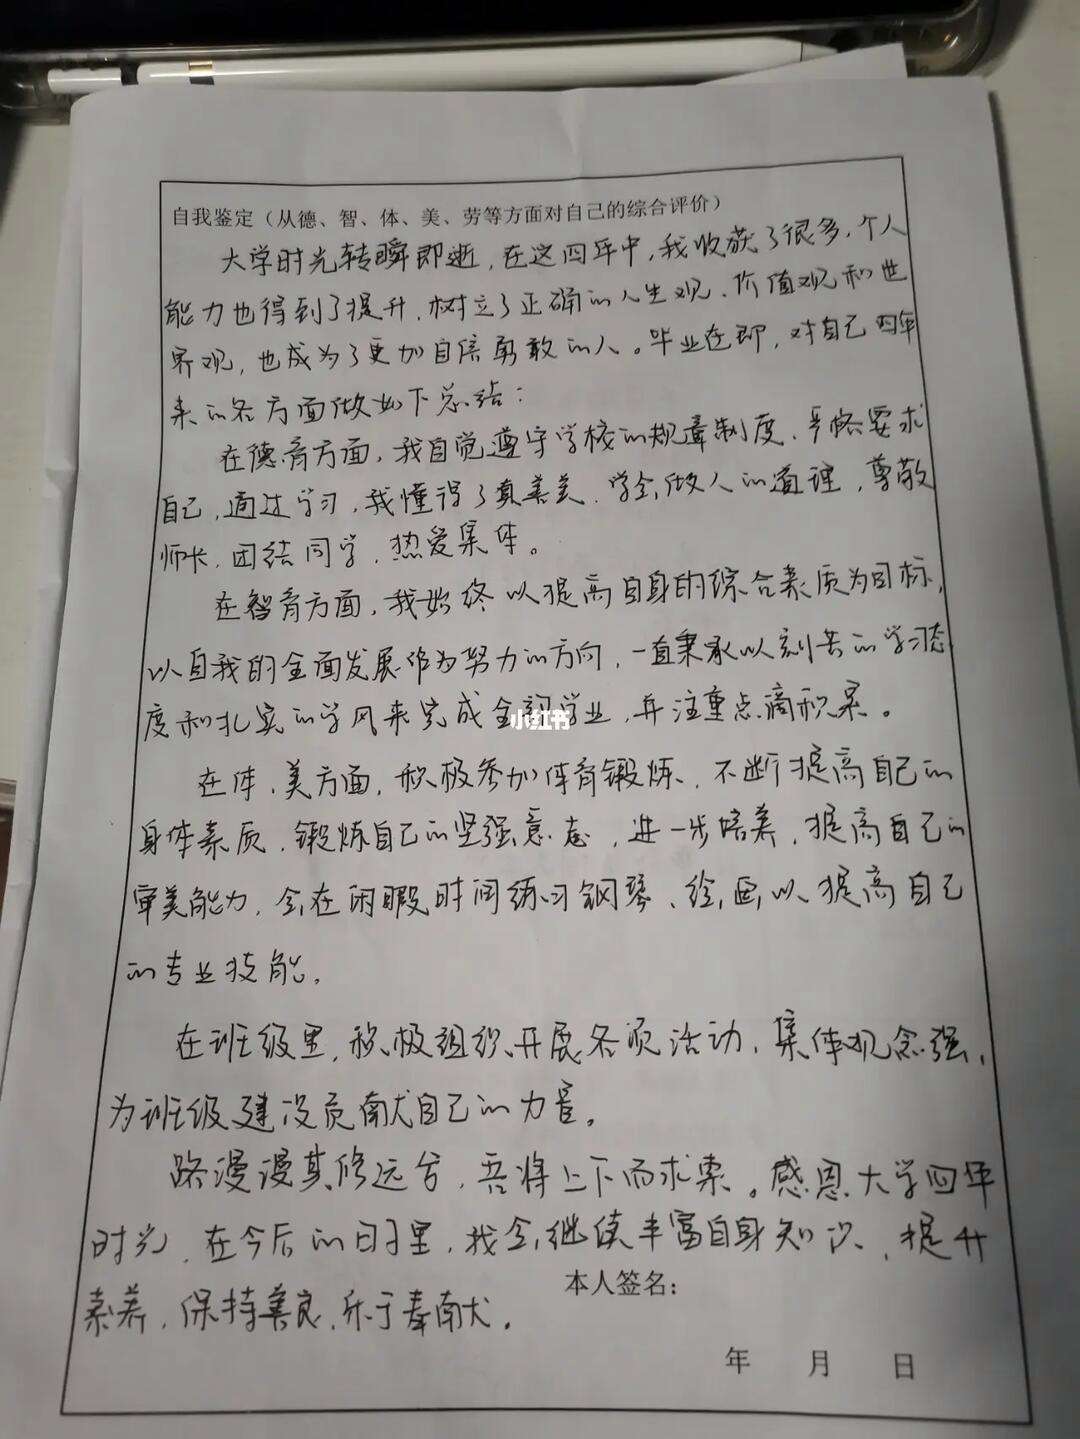 自我鉴定（从德、智、体、美、劳等方面对自己的综合评价）
大学时光转瞬即逝，在这四年中，我收获了很多，个人
能力也得到了提升，树立了正确的人生观、价值观和世
界观，也成为了更加自信勇敢的人。毕业在即，对自己四年
来的各方面做如下总结：
在德育方面，我自觉遵守学校的规章制度，严格要求
自己，通过学习，我懂得了真善美，学会做人的道理，尊敬
师长，团结同学，热爱集体。
在智育方面，我始终以提高自身的综合素质为目标，
以自我的全面发展作为努力的方向，一直秉承以刻苦的学习态
度和扎实的学风来完成全部学业，并注重点滴积累。
小红书
在体、美方面，积极参加体育锻炼，不断提高自己的
身体素质，锻炼自己的坚强意志，进一步培养，提高自己的
审美能力，会在闲暇时间练习钢琴、绘画以提高自己
的专业技能。
在班级里，积极组织开展各项活动，集体观念强，
为班级建设贡献自己的力量。
路漫漫其修远兮，吾将上下而求索。感恩大学四年
时光，在今后的日子里，我会继续丰富自身知识，提升
素养，保持善良，乐于奉献。
本人签名：
年 月 日